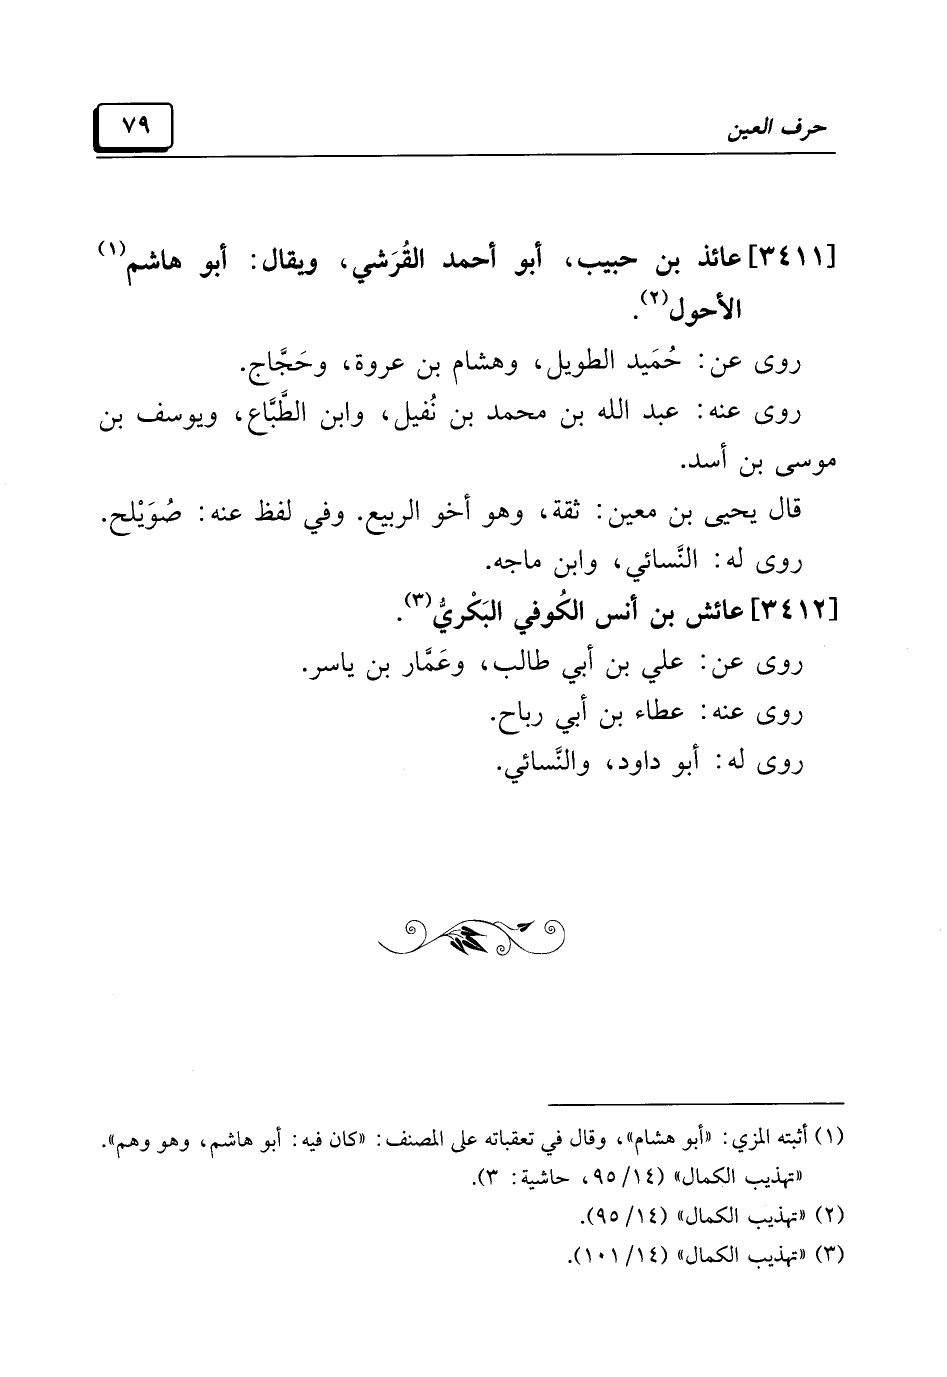 حرف العين
٧٩
[٣٤١١] عائذ بن حبيب، أبو أحمد القُرَشي، ويقال: أبو هاشم(١)
الأحول(٢).
روى عن: حُمَيد الطويل، وهشام بن عروة، وحَجَّاج.
روى عنه: عبد الله بن محمد بن نُفيل، وابن الطَّبَّاع، ويوسف بن
موسى بن أسد.
قال يحيى بن معين: ثقة، وهو أخو الربيع. وفي لفظ عنه: صُوَيْلح.
روى له: النَّسائي، وابن ماجه.
[٣٤١٢] عائش بن أنس الكُوفي البَكْريُّ(٣).
روى عن: علي بن أبي طالب، وعَمَّار بن ياسر.
روى عنه: عطاء بن أبي رباح.
روى له: أبو داود، والنَّسائي.
(١) أثبته المزي: «أبو هشام»، وقال في تعقباته على المصنف: «كان فيه: أبو هاشم، وهو وهم».
«تهذيب الكمال» (١٤/ ٩٥، حاشية: ٣).
(٢) «تهذيب الكمال» (١٤/ ٩٥).
(٣) «تهذيب الكمال» (١٤/ ١٠١).